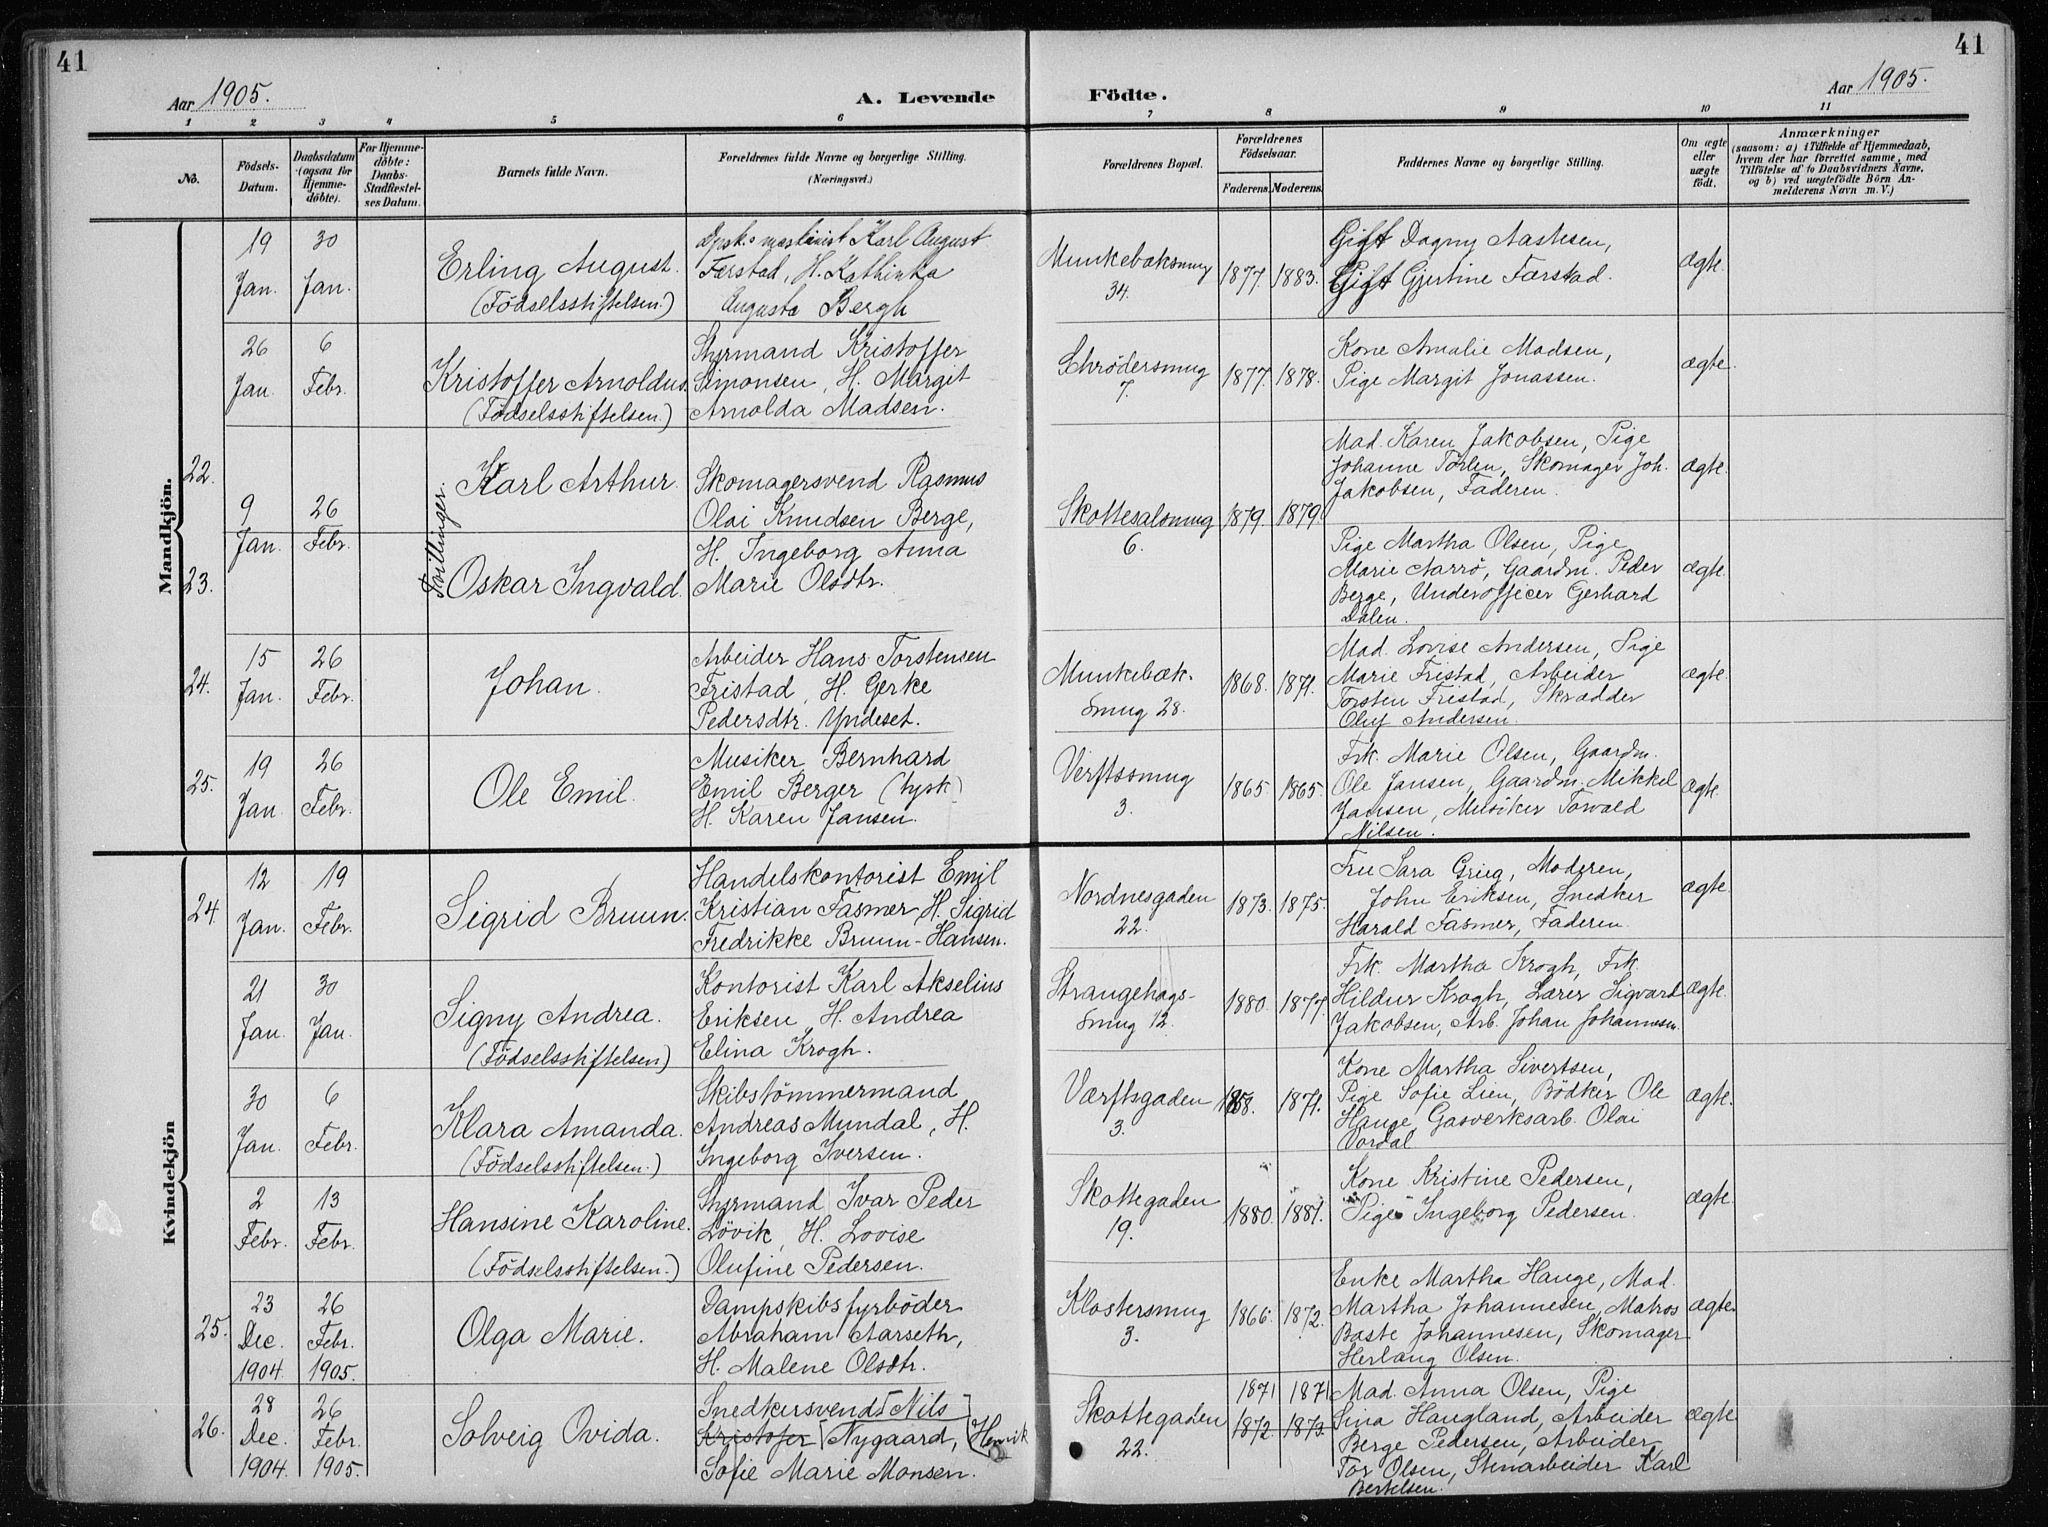 41
41
Aar 1905.
A. Levende
Födte.
Aar 1905.
1 2 3 4 5 6 7 8 9 10 11
No.
Födsels-
Datum.
Daabsdatum
(ogsaa for
Hjemme-
döbte).
For Hjemme-
döbte:
Daabs-
Stadfæstel-
ses Datum.
Barnets fulde Navn.
Forældrenes fulde Navne og borgerlige Stilling.
(Næringsvei.)
Forældrenes Bopæl.
Forældrenes
Födselsaar.
Faderens. Moderens.
Faddernes Navne og borgerlige Stilling.
Om ægte
eller
uægte
födt.
Anmærkninger
(saasom: a) i Tilfælde af Hjemmedaab,
hvem der har forrettet samme, med
Tilföielse af to Daabsvidners Navne,
og b) ved uægtefödte Börn An-
melderens Navn m. V.)
Mandkjön.
19
Jan.
30
Jan.
Erling August.
(Födselsstiftelsen.)
Karl August
Færstad, H. Kathinka
Augusta Bergh
Munkebæksmug
34.
1877. 1883.
Gift Dagny Aastesen,
Gift Gjertine Færstad.
ægte.
26
Jan.
6
Febr.
Kristoffer Arnoldus.
(Födselsstiftelsen.)
Styrmand Kristoffer
Simonsen, H. Margit
Arnolda Madsen.
Schrødersmug
7.
1877. 1878.
Kone Amalie Madsen,
Pige Margit Jonassen.
ægte.
22.
23.
9
Jan.
26
Febr.
Tvillinger.
Karl Arthur.
Oskar Ingvald.
Skomagersvend Rasmus
Olai Knudsen Berge,
H. Ingeborg Anna
Marie Olsdtr.
Skottesalsmug
6.
1879. 1879.
Mad. Karen Jakobsen, Pige
Johanne Torlen, Skomager Joh.
Jakobsen, Faderen.
ægte.
Pige Martha Olsen, Pige
Marie Aarrö, Gaardm. Peder
Berge, Underofficer Gerhard
Dalen.
ægte.
24.
15
Jan.
26
Febr.
Johan.
Arbeider Hans Torstensen
Fristad, H. Gerke
Pedersdtr. Yndeset.
Munkebæk-
smug 28.
1868. 1871.
Mad. Lovise Andersen, Pige
Marie Fristad, Arbeider
Torsten Fristad, Skrædder
Oluf Andersen.
ægte.
25.
19
Jan.
26
Febr.
Ole Emil.
Musiker Bernhard
Emil Berger (tysk)
H. Karen Jansen.
Verftssmug
3.
1865. 1865.
Frk. Marie Olsen, Gaardm.
Ole Jansen, Gaardm. Mikkel
Jansen, Musiker Torvald
Nilsen.
ægte.
Kvindekjön
24.
12
Jan.
19
Febr.
Sigrid Bruun.
Handelskontorist Emil
Kristian Fasmer, H. Sigrid
Fredrikke Bruun-Hansen.
Nordnesgaden
22.
1873. 1875.
Fru Sara Grieg, Moderen,
John Eriksen, Snedker
Harald Fasmer, Faderen.
ægte.
21
Jan.
30
Jan.
Signy Andrea.
(Födselsstiftelsen.)
Kontorist Karl Akselius
Eriksen, H. Andrea
Elina Krogh.
Strangehags-
smug 12.
1880. 1877.
Frk. Martha Krogh, Frk.
Hildur Krogh, Lærer Sigvard
Jakobsen, Arb. Johan Johannesen.
ægte.
30
Jan.
6
Febr.
Klara Amanda.
(Födselsstiftelsen.)
Skibstömmermand
Andreas Mundal, H.
Ingeborg Iversen.
Værftsgaden
3.
1871.
Kone Martha Sivertsen,
Pige Sofie Lien, Bödker Ole
Hauge, Gasverksarb. Olai
Vordal
ægte.
2
Febr.
13
Febr.
Hansine Karoline.
(Födselsstiftelsen.)
Styrmand Ivar Peder
Lövik, H. Lovise
Olufine Pedersen.
Skottegaden
19.
1880. 1881.
Kone Kristine Pedersen,
Pige Ingeborg Pedersen.
ægte.
25.
23
Dec.
1904.
26
Febr.
1905.
Olga Marie.
Dampskibsfyrböder
Abraham Aarseth,
H. Malene Olsdtr.
Klostersmug
3.
1866. 1872.
Enke Martha Hauge, Mad.
Martha Johannesen, Matros
Baste Johannesen, Skomager
Herlaug Olsen.
ægte.
26.
28
Dec.
1904.
26
Febr.
1905.
Solveig Ovida.
Snedkersvend Nils
Kristofer Nygaard, (Henrik
Sofie Marie Monsen.
Skottegaden
22.
1871 1871
1872 1873
Mad. Anna Olsen, Pige
Sina Haugland, Arbeider
Berge Pedersen, Arbeider
Tor Olsen, Stenarbeider Karl
Bertelsen.
ægte.